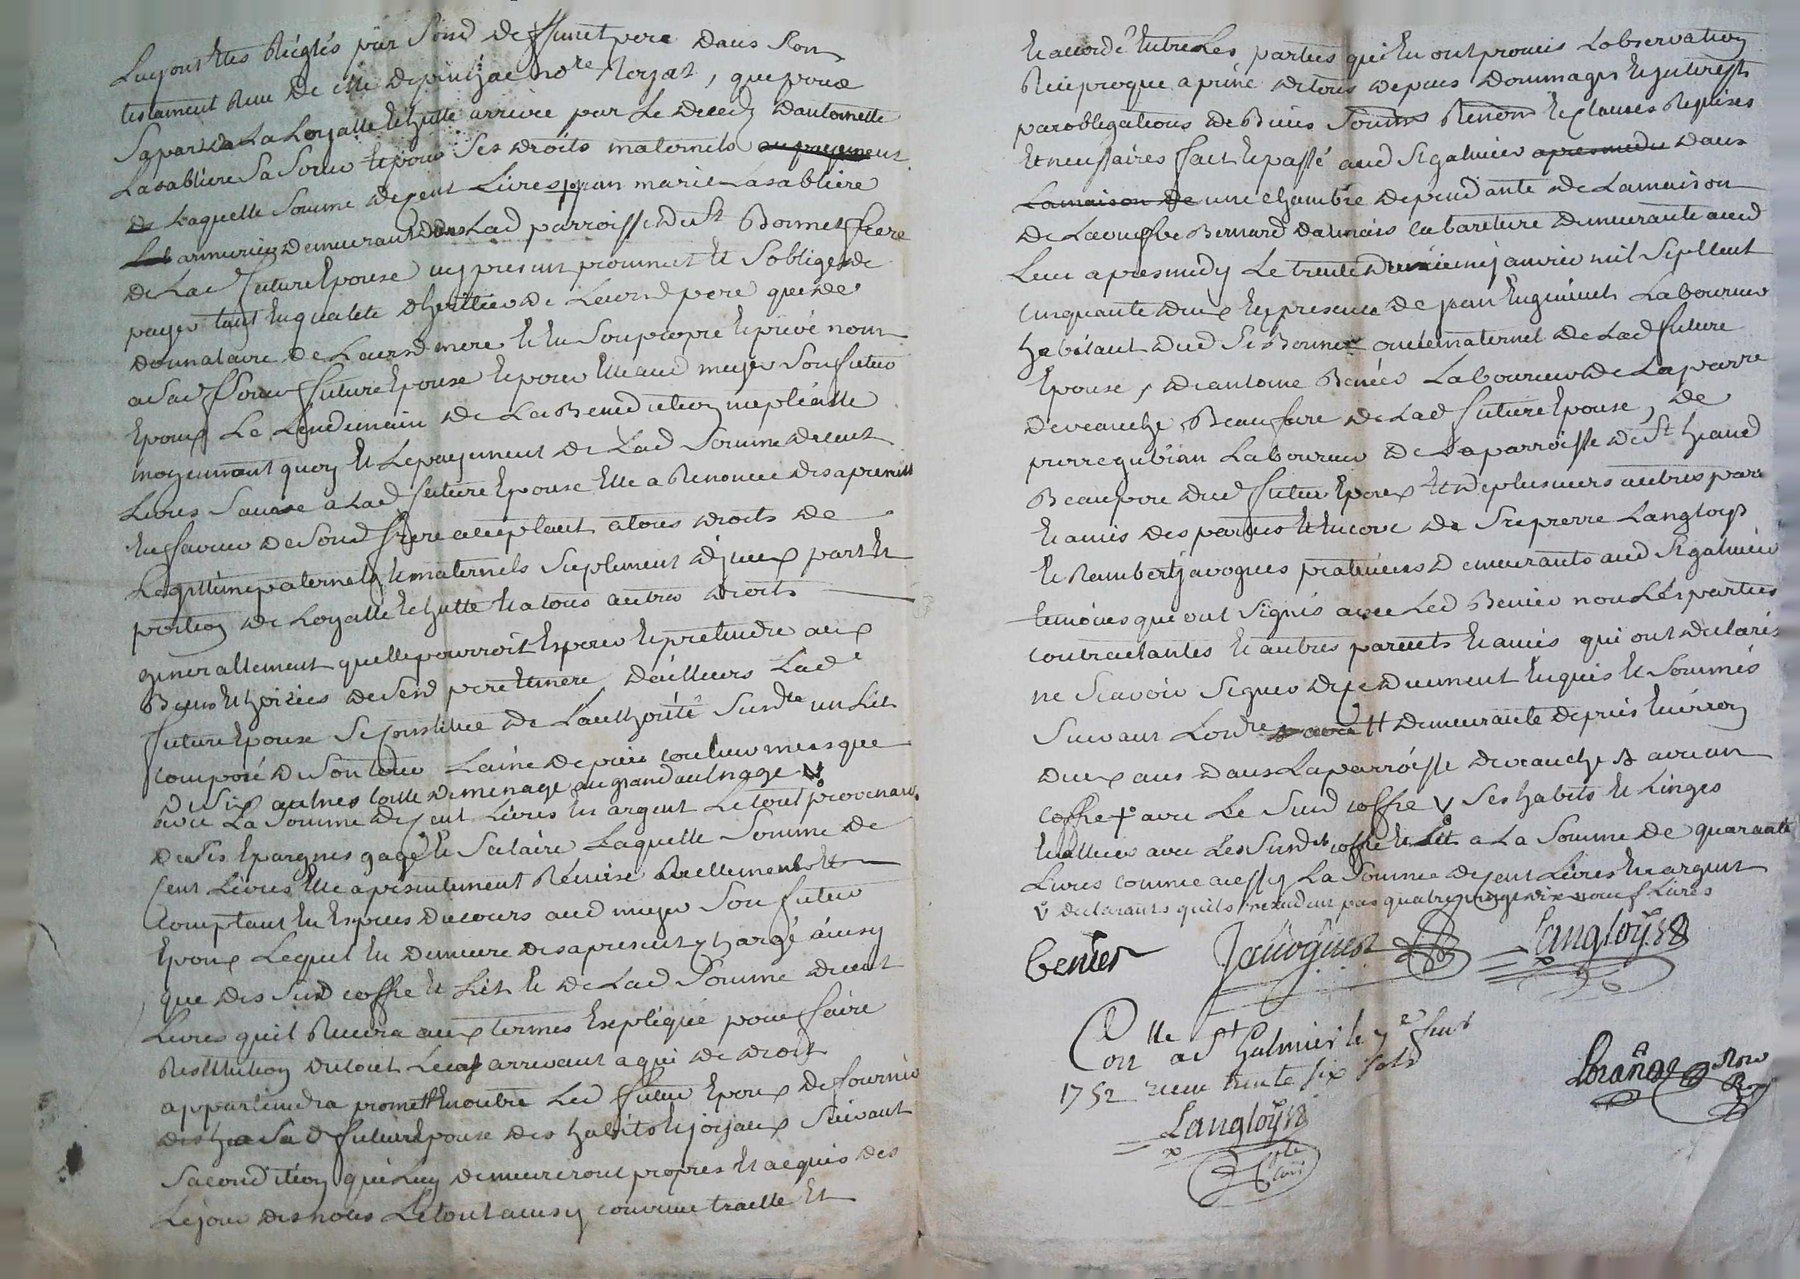 Luy ont étés Réglés par Sond deffunt pere dans Son
testament Receu de Me depinhac no.re Royal, que pour
Sa part de La Loyalle Echutte arrivée par Le Deceds D'antoinette
Lasabliere Sa Soeur Et pour Ses droits maternels au payement
de Laquelle Somme de Cent Livres jean marie Lasabliere
armurier demeurant dans Lad parroisse du St Bonnet frere
de Lad future Epouse icy present promet Et S'oblige de
payer tant En qualité d'heritier de Leurd pere que de
donnataire de Leurd mere Et En Son propre Et privé nom
a Sad Soeur future Epouse Et pour Elle aud meyer Son futur
Epoux Le Lendemain de La Benediction nuptialle
moyennant quoy Et Le payement de Lad Somme de cent
Livres Sauvée a Lad future Epouse Elle a Renoncé des a present
En faveur de Sond frere acceptant a tous droits de
Legitime paternels Et maternels Suplement d'jceux part Et
portion de Loyalle Echutte Et a tous autres droits
generallement quelle pourroit Esperer Et pretendre aux
Biens Et hoiries de Sesd pere Et mere D'ailleurs Lad
future Epouse Se Constitue de L'authorité Susdte un Lit
composé de Son tour Laine de pais couleur musque
de Six aulnes toille de menage au grand aulnage V
avec La Somme de Cent Livres En argent Le tout provenant
de Ses Epargnes gages Et Salaire Laquelle Somme de
Cent Livres Elle a presentement Remise Reellement Et
Comptant En Especes du cours aud meyer Son futur
Epoux Lequel En demeure des a present Chargé ainsy
que des Susd coffre Et Lit Et de Lad Somme de cent
Livres qu'il Recevra aux termes Expliqué pour faire
Restitution du tout Le cas arrivant a qui de droit
appartiendra promettt En outre Led futur Epoux de fournir
a Sad future Epouse des habits Et joyaux Suivant
Sa condition qui Luy demeureront propres Et acquis des
Le jour des noces Le tout ainsy convenu traitté Et
Et accordé Entre Les parties qui En ont promis L'observation
Reciproque a peine de tous depens dommages Et jnterests
par obligations de Biens Soum Renon Et Clauses Requises
Et necessaires fait Et passé aud St galmier apres midu dans
La maison de une chambre dependante de La maison
de La veufve Bernard dalmais Cabaretiere demeurante aud
Lieu apres midy Le trente deuxieme janvier mil Sept Cent
Cinquante deux En presence de jean Labourreur
habitant dud St Bonnet oncle maternel de Lad future
Epouse, de antoine Benier Laboureur de La parre
de veauche Beau frere de Lad future Epouse, de
pierre gubian Laboureur de La parroisse de St heand
Beau pere dud futur Epoux Et de plusieurs autres parens
Et amis des parties Et Encore de Sr pierre Langlois
Et Rambert javogues praticiens demeurants aud St galmier
temoins qui ont Signés avec Led Benier non Les parties
contractantes Et autres parents Et amis qui ont declarés
ne Scavoir Signer de ce Duement Enquis Et Sommés
Suivant L'ordre H demeurante depuis Environ
deux ans dans La parroisse de veauche avec un
Coffre + avec Le Susd coffre V Ses habits Et Linges
Evalluer avec Les Susdts coffre Et Lit a La Somme de quarante
Livres comme aussy La Somme de Cent Livres En argent
V declarants qu'ils n'excedent pas quatre vingt dix neuf Livres
benier Javogues Langlois
Con.lle a St Galmier le 7e fev
1752 receu trente six sols
Langlois
Not Roy